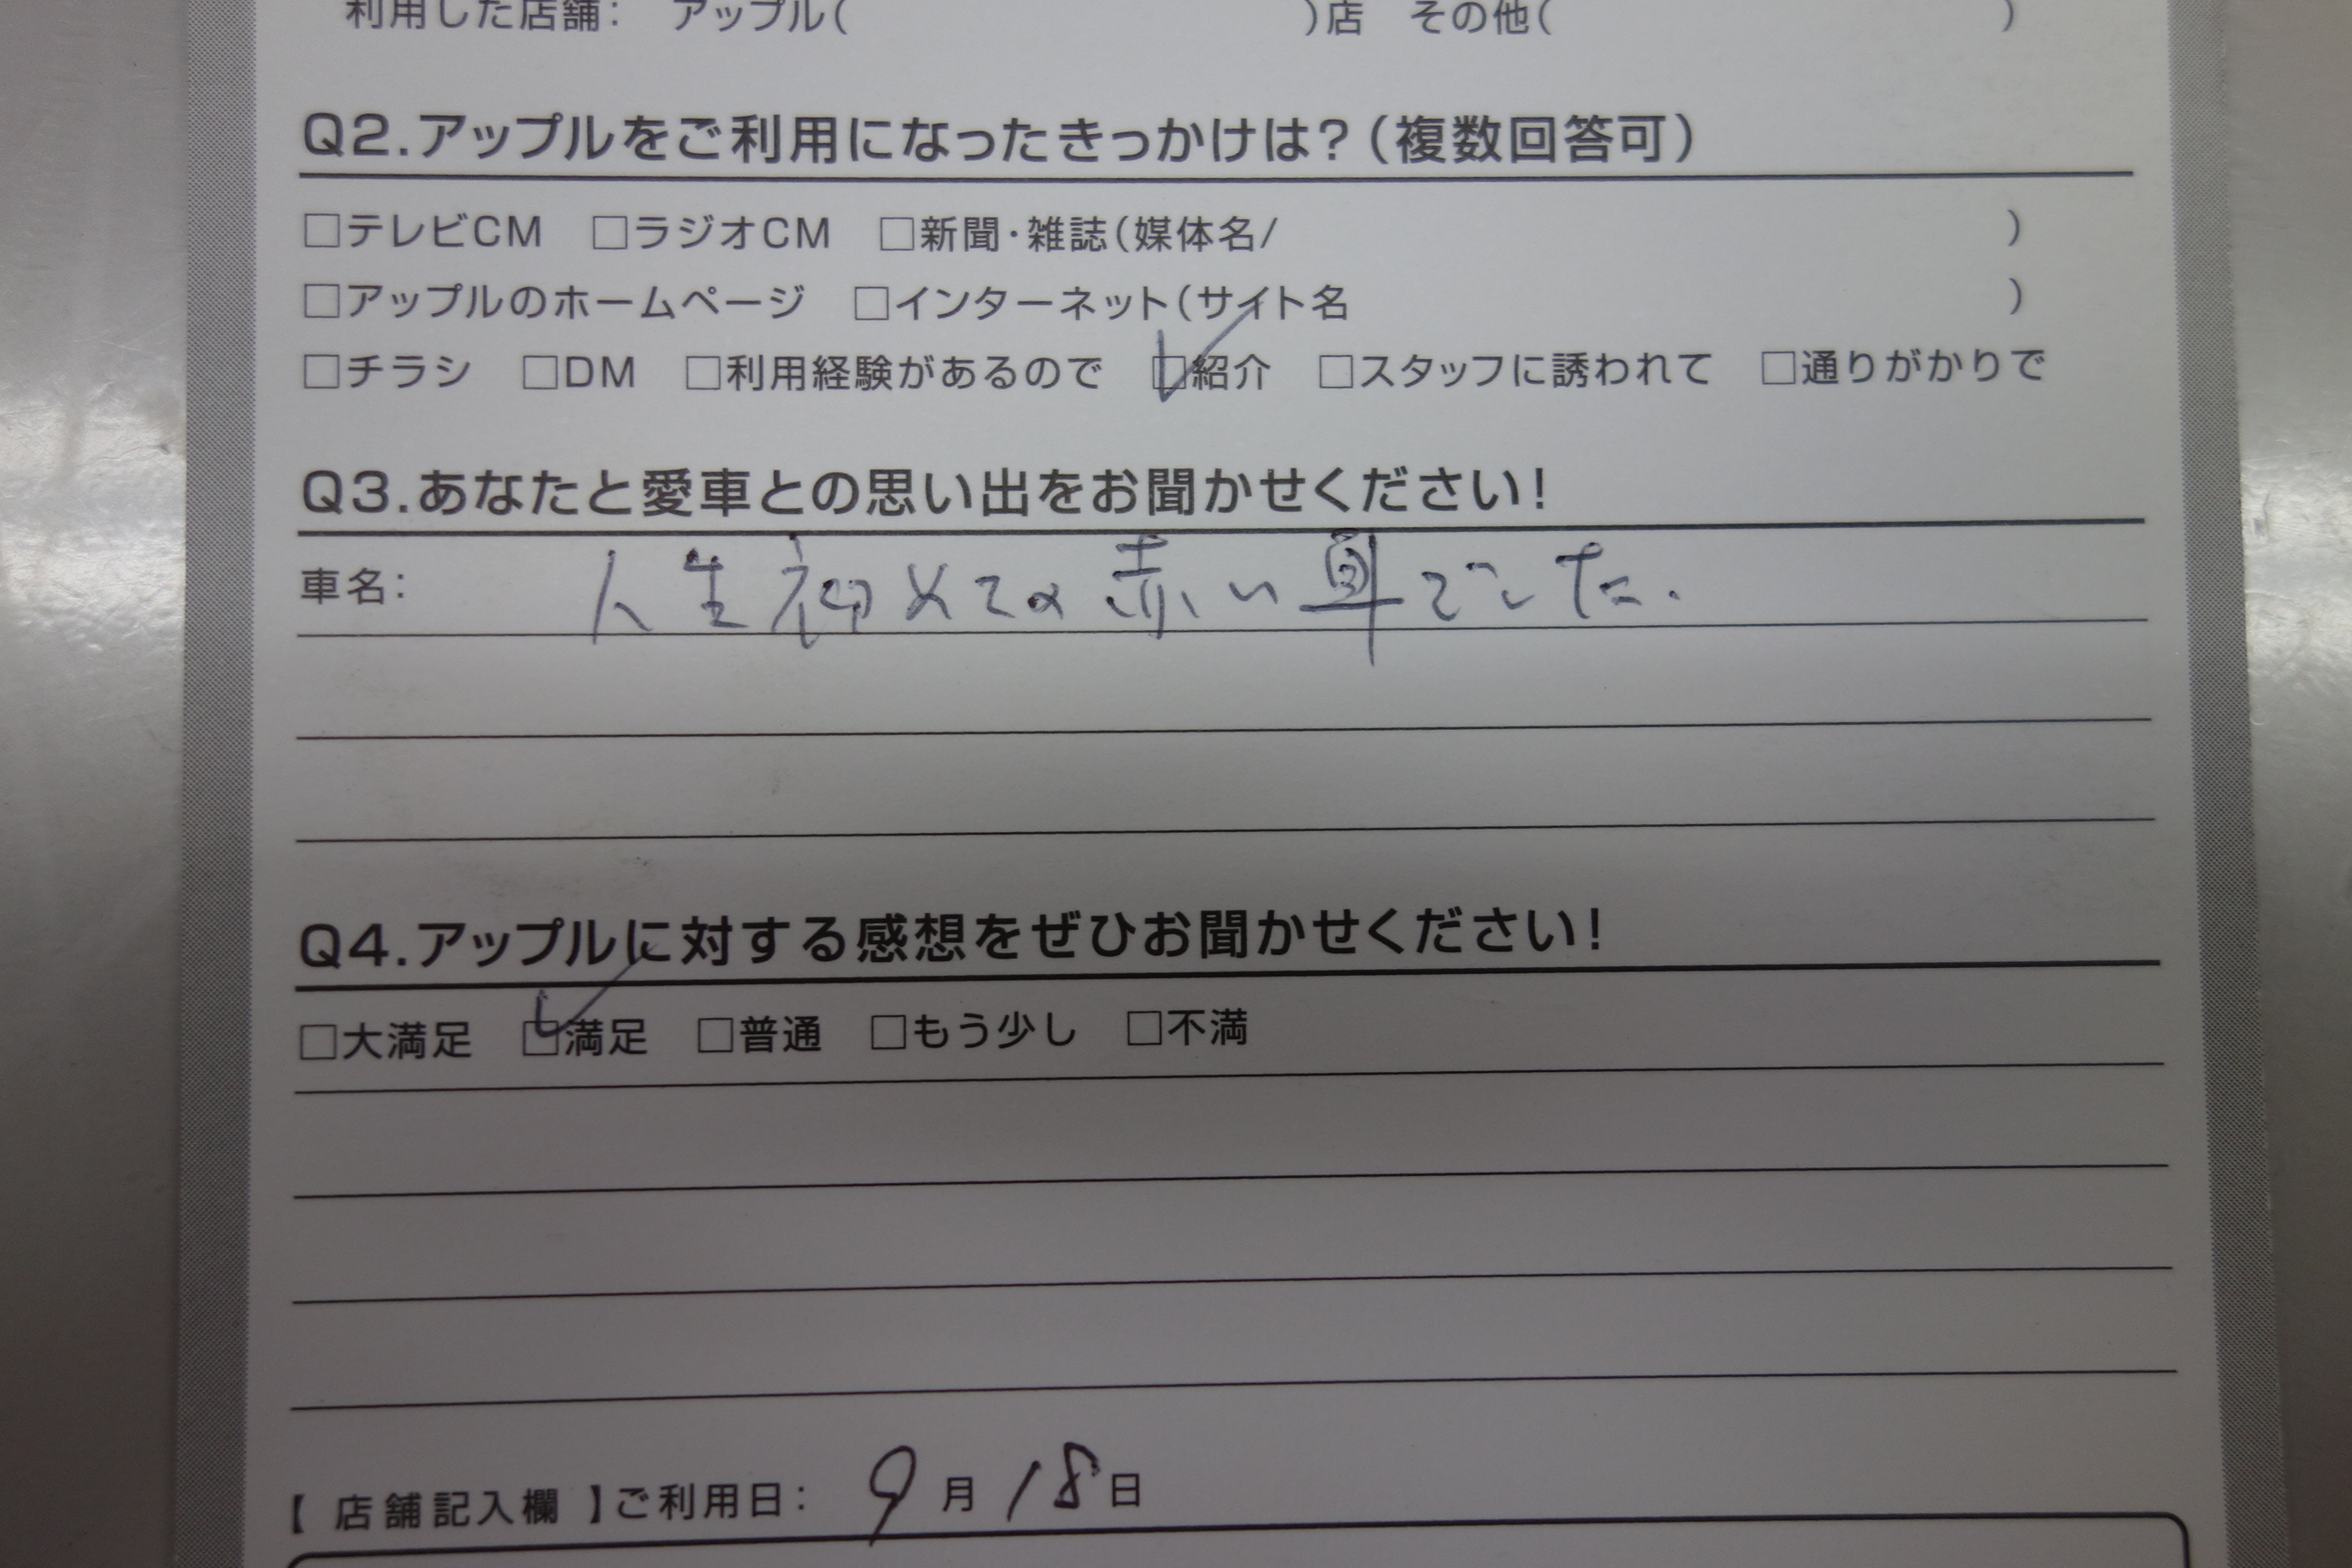 利用した店舗: アップル( )店 その他( )
Q2.アップルをご利用になったきっかけは?(複数回答可)
□テレビCM □ラジオCM □新聞・雑誌(媒体名/ )
□アップルのホームページ □インターネット(サイト名 )
□チラシ □DM □利用経験があるので ☑紹介 □スタッフに誘われて □通りがかりで
Q3.あなたと愛車との思い出をお聞かせください!
車名: 人生初めての赤い車でした.
Q4.アップルに対する感想をぜひお聞かせください!
□大満足 ☑満足 □普通 □もう少し □不満
【 店舗記入欄 】ご利用日: 9月18日